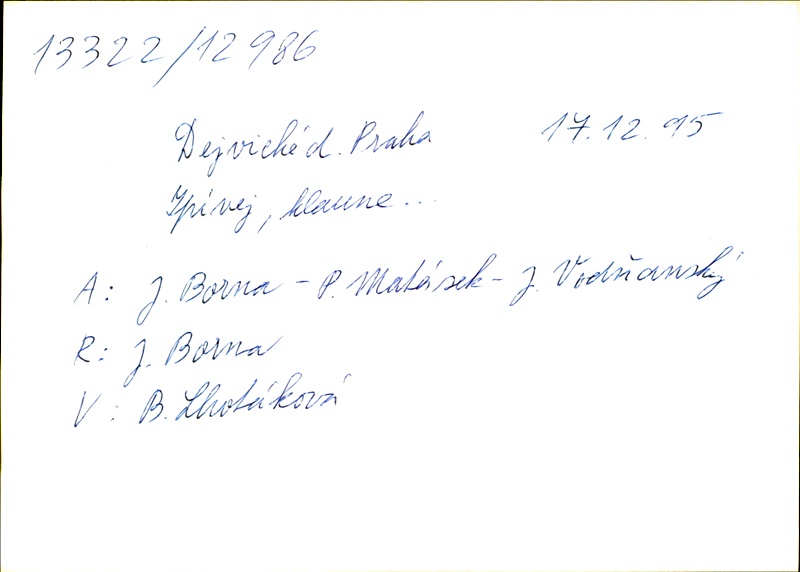 13322/12986
Dejvické d. Praha 17.12.95
Zpívej, klaune...
A: J. Borna - P. Matásek - J. Vodňanský
R: J. Borna
V: B. Lhotáková